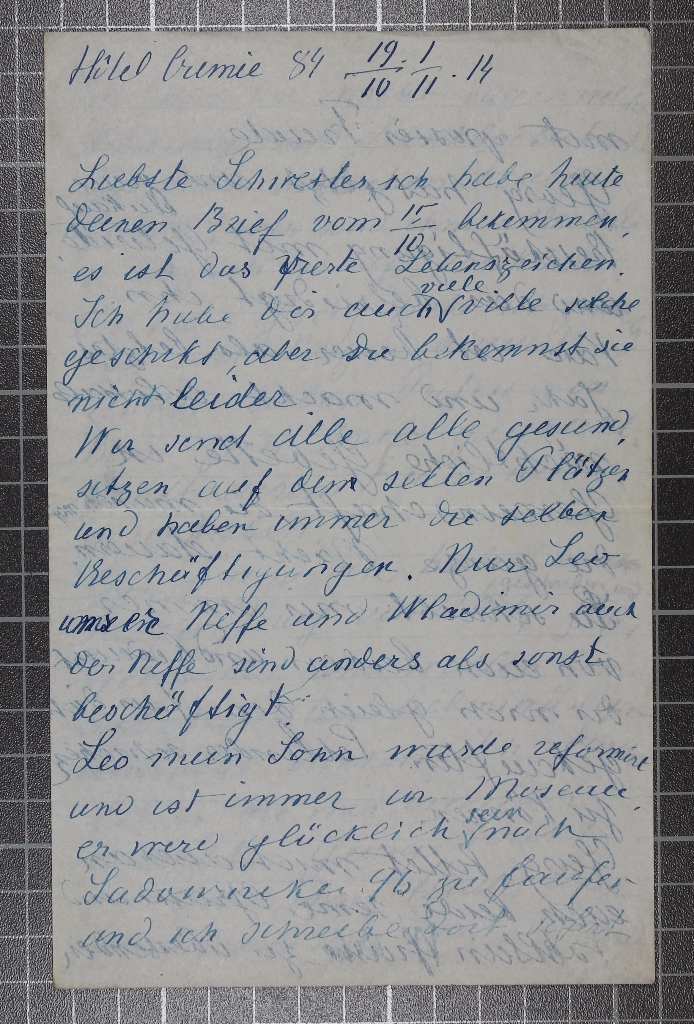 Hôtel Crimée 84 19/10 . 1/11 . 14
Liebste Schwester ich habe heute
deinen Brief vom 15/10 bekommen,
es ist das vierte Lebenszeichen.
Ich habe dir auch viele solche
geschikt, aber du bekommst sie
nicht leider
Wir sind alle alle gesund,
sitzen auf dem selben Plätzen
und haben immer die selben
Beschäftigungen. Nur Leo
unser Neffe und Wladimir auch
der Neffe sind anders als sonst
beschäftigt.
Leo mein Sohn wurde reformirt
und ist immer in Moscau,
er were glücklich sein nach
Sadownickei 96 zu laufen
und ich schreibe dort